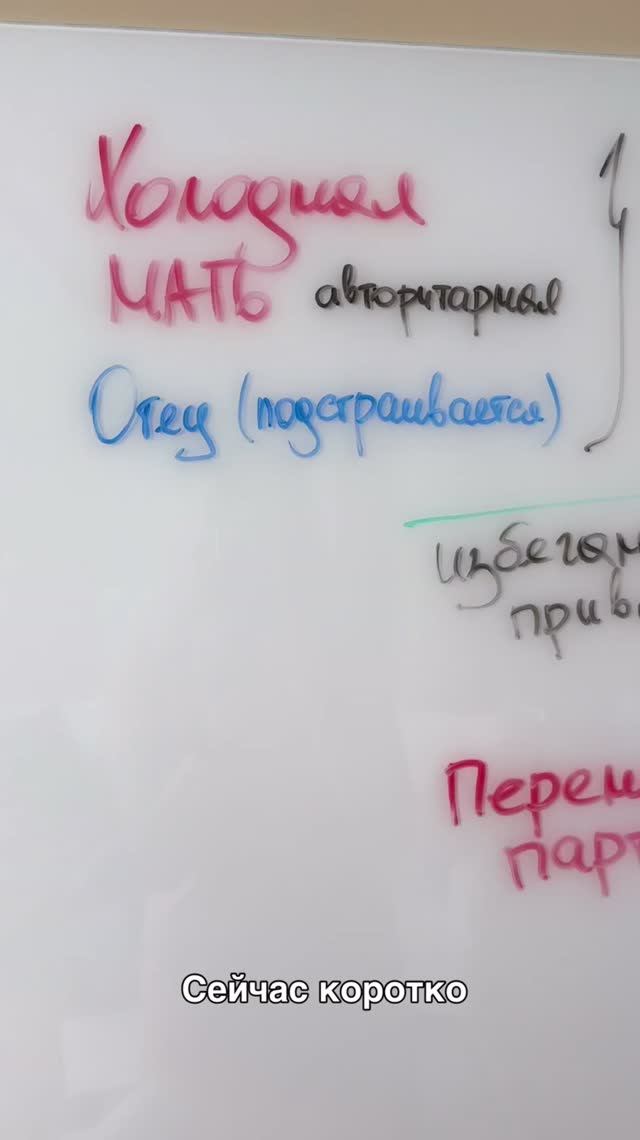 Холодная
МАТЬ авторитарная
Отец (подстраивается)
избеган
прив
Перен
парт
Сейчас коротко